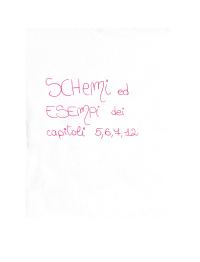 SCHEMi ed
ESEMPi dei
capitoli 5,6,7,12